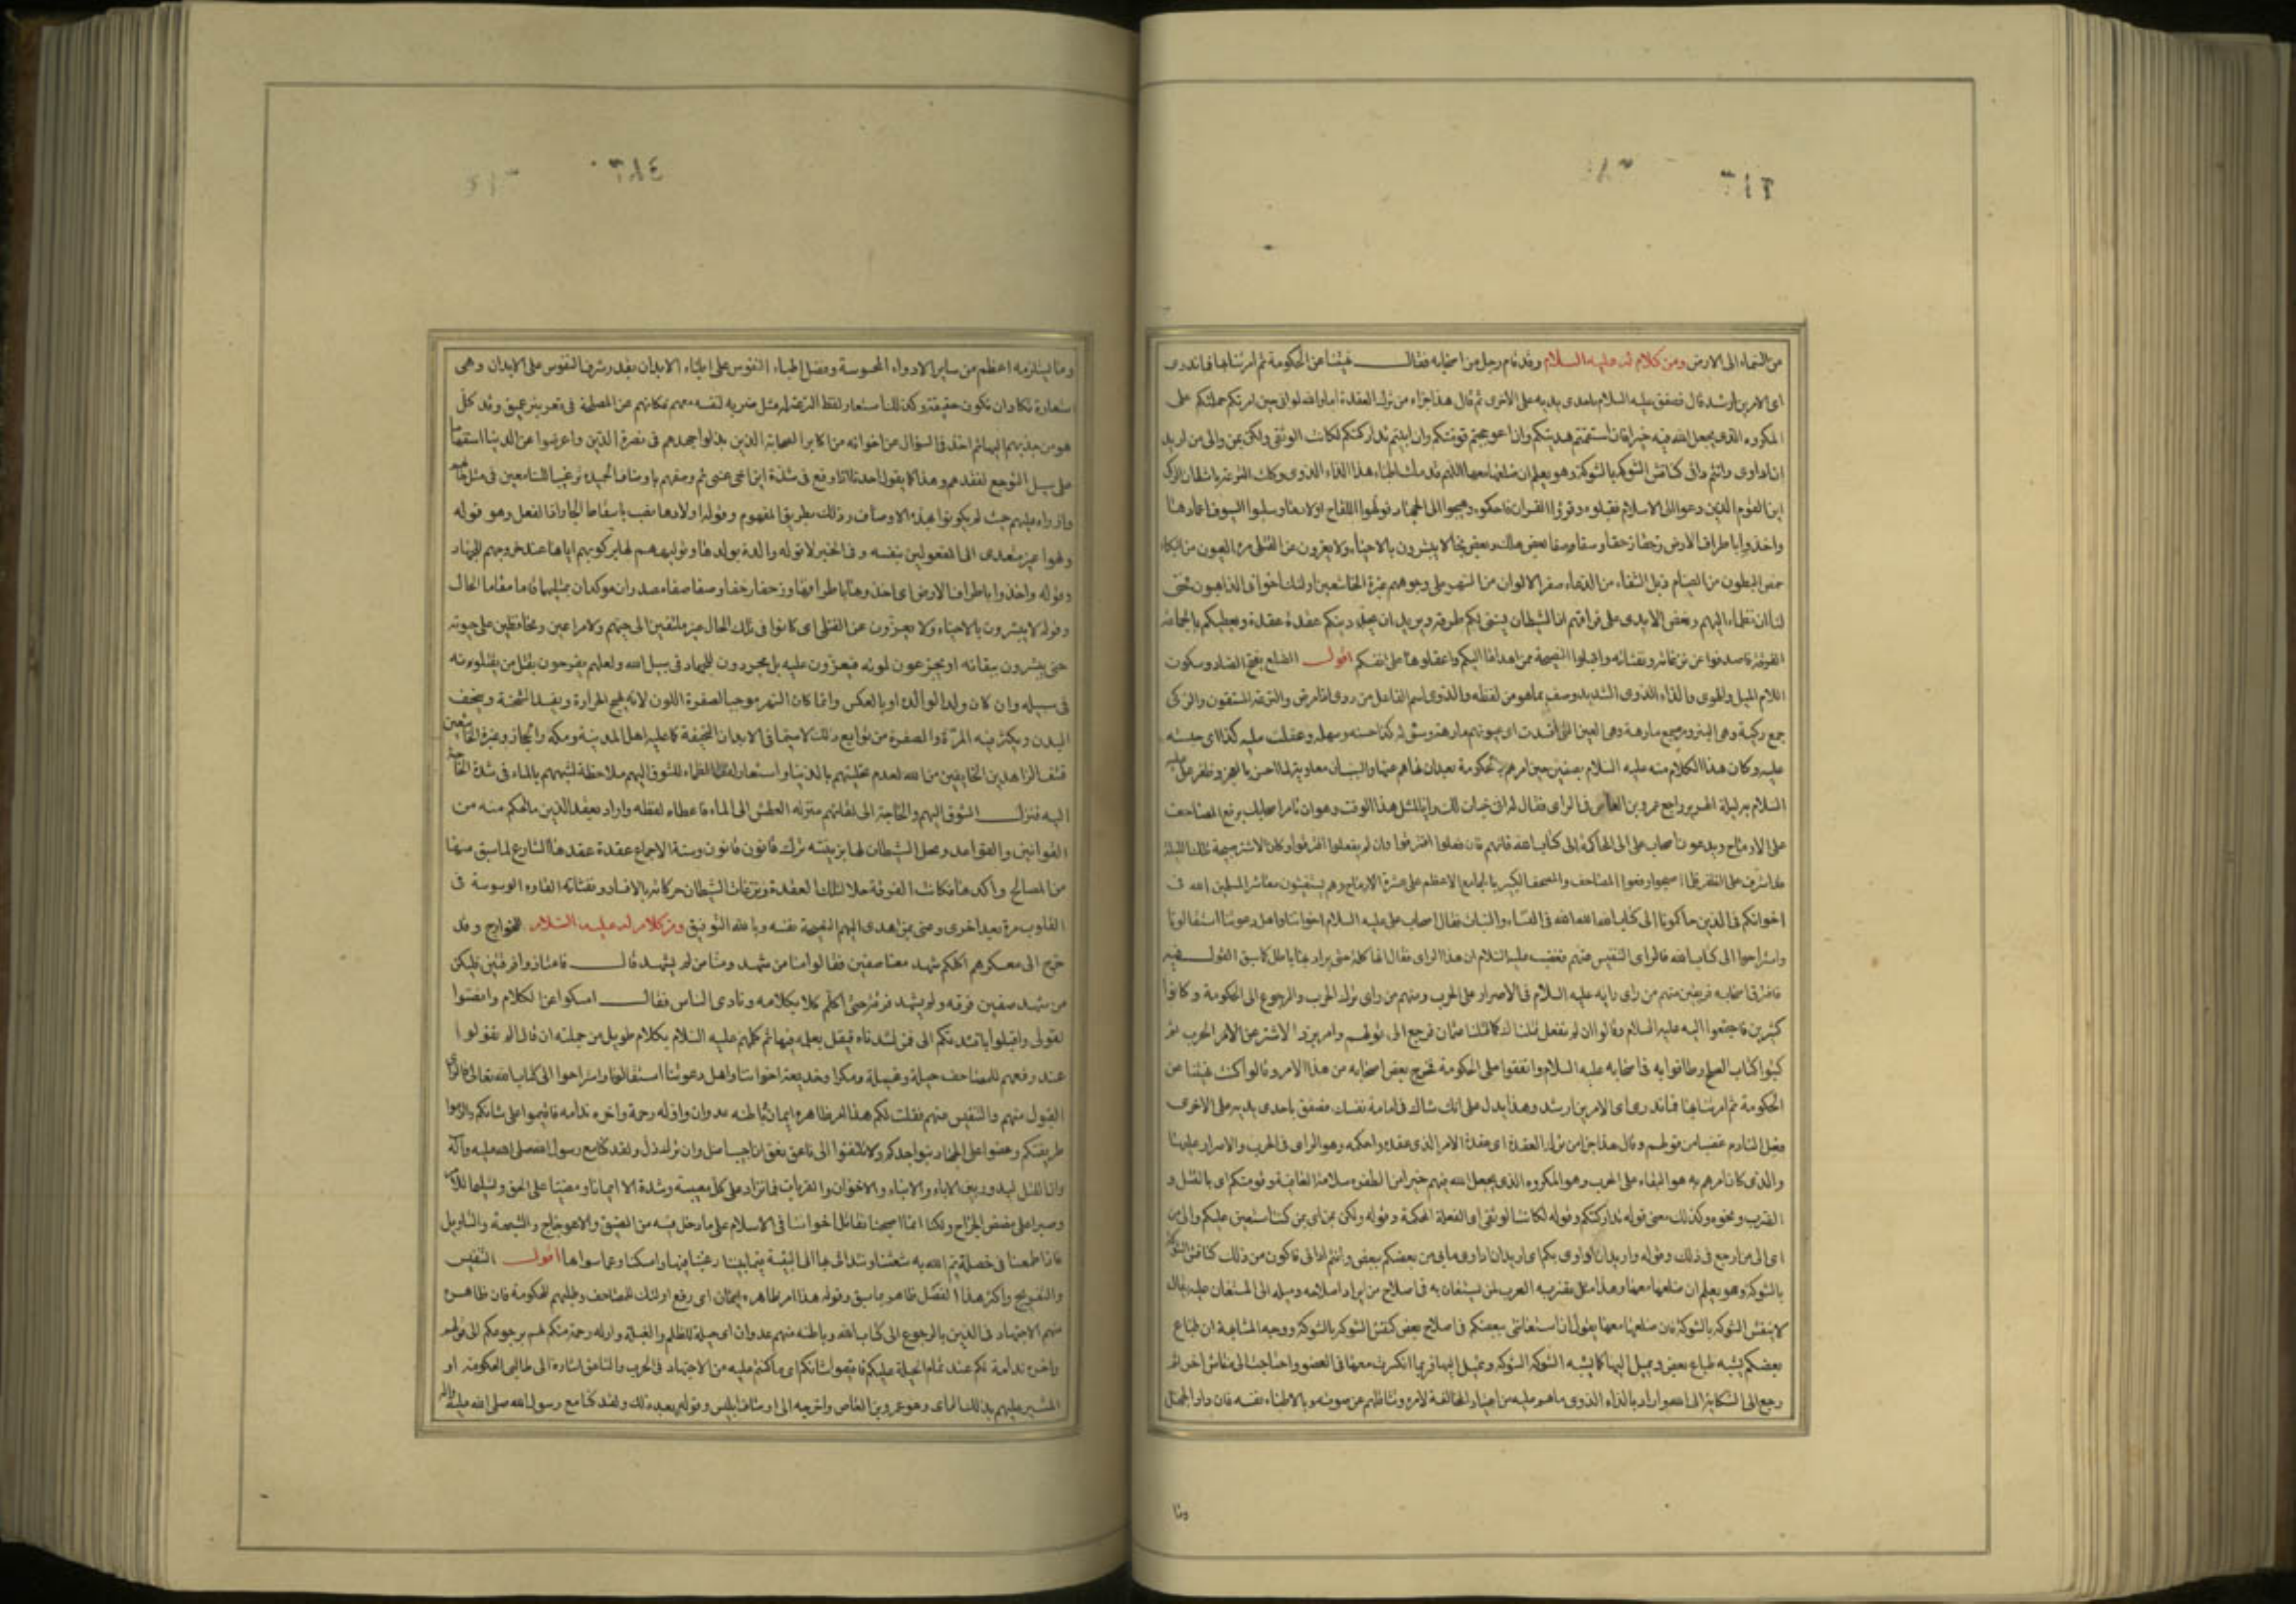 من السماء الى الارض ومن كلام له عليه السلام وقد قام رجل من اصحابه فقال نهيتنا عن الحكومة ثم امرتنا بها فما ندرى
اى الامرين ارشد قال فصفق عليه السلام باحدى يديه على الاخرى ثم قال هذا جزاء من ترك العقدة اما والله لو انى حين امرتكم حملتكم على
المكروه الذى يجعل الله فيه خيرا فان استقمتم هديتكم وان اعوججتم قومتكم وان ابيتم تداركتكم لكانت الوثقى ولكن بمن والى من اريد
ان اداوى وانتم دائى كناقش الشوكة بالشوكة وهو يعلم ان ضلعها معها اللهم قد ملت اطباء هذا الداء الدوى وكلت النزعة باشطان الركى
اين القوم الذين دعوا الى الاسلام فقبلوه وقرؤا القران فاحكموه وهيجوا الى الجهاد فولهوا اللقاح اولادها وسلبوا السيوف اغمادها
واخذوا باطراف الارض زحفا زحفا وصفا صفا بعض هلك وبعض نجا لا يبشرون بالاحياء ولا يعزون عن القتلى مره العيون من البكاء
خمص البطون من الصيام ذبل الشفاه من الدعاء صفر الالوان من السهر على وجوههم غبرة الخاشعين اولئك اخوانى الذاهبون فحق
لنا ان نظماء اليهم ونعض الايدى على فراقهم ان الشيطان يسنى لكم طرقه ويريد ان يحل دينكم عقدة عقدة ويعطيكم بالجماعة
الفرقة فاصدفوا عن نزغاته ونفثاته واقبلوا النصيحة ممن اهداها اليكم واعقلوها على انفسكم اقول الضلع بفتح الضاد وسكون
اللام الميل والهوى والداء الدوى الشديد وصف بما هو من لفظه والدوى اسم الفاعل من دوى اذا مرض والنزعة المستقون والركى
جمع ركية وهى البئر ومره جمع مارهة وهى العين التى فسدت
عليه وكان هذا الكلام منه عليه السلام بصفين حين امرهم بالحكومة بعد ان نهاهم عنها والسبب ان معاوية لما احس بالعجز وظفر على عليه
السلام به ليلة الهرير راجع عمرو بن العاص فى الراى فقال له انى خبات لك رايا لمثل هذا الوقت وهو ان تامر اصحابك برفع المصاحف
على الارماح ويدعون اصحاب على الى المحاكمة الى كتاب الله فانهم ان فعلوا افترقوا وان لم يفعلوا افترقوا وكان الاشتر صبيحة تلك الليلة
قد اشرف على الظفر فلما اصبحوا رفعوا المصاحف والمصحف الكبير بالجامع الاعظم على عشرة الارماح وهم يستغيثون معاشر المسلمين الله فى
اخوانكم فى الدين حاكمونا الى كتاب الله الله الله فى النساء والبنات فقال اصحاب على عليه السلام اخواننا واهل دعوتنا استقالونا
واستراحوا الى كتاب الله فالراى التنفيس عنهم فغضب عليه السلام من هذا الراى فقال انها كلمة حق يراد بها باطل كما سبق القول فيه
فافترق اصحابه فريقين منهم من راى رايه عليه السلام فى الاصرار على الحرب ومنهم من راى ترك الحرب والرجوع الى الحكومة وكانوا
كثيرين فاجتمعوا اليه عليه السلام وقالوا ان لم تفعل قتلناك كما قتلنا عثمان فرجع الى قولهم وامر برد الاشتر عن الحرب ثم
كتبوا كتاب الصلح وطافوا به فى اصحابه عليه السلام واتفقوا على الحكومة فخرج بعض اصحابه من هذا الامر وقالوا كنت نهيتنا عن
الحكومة ثم امرتنا بها فما ندرى اى الامرين ارشد وهذا يدل على انك شاك فى امامة نفسك فصفق باحدى يديه على الاخرى
فعل النادم غضبا من قولهم وقال هذا جزاء من ترك العقدة اى عقدة الامر الذى عقده واحكمه وهو الراى فى الحرب والاصرار عليها
والذى كان امرهم به هو البقاء على الحرب وهو المكروه الذى يجعل الله فيه خيرا من الظفر وسلامة العاقبة وقومتكم اى بالقتل و
الضرب ونحوه وكذلك معنى قوله تداركتكم وقوله لكانت الوثقى اى الفعلة المحكمة وقوله ولكن بمن اى بمن كنت استعين عليكم والى من
اى الى من ارجع فى ذلك وقوله واريد ان اداوى بكم اى اريد ان اداوى ما بى من بعضكم ببعض وانتم دائى فاكون فى ذلك كناقش الشوكة
بالشوكة وهو يعلم ان ضلعها معها وهذا مثل تضربه العرب لمن يستعان به فى اصلاح من يراد اصلاحه وميله الى المستعان عليه يقال
لا تنقش الشوكة بالشوكة فان ضلعها معها يقول ان استعانتى ببعضكم فى اصلاح بعض كنقش الشوكة بالشوكة ووجه المشابهة ان طباع
بعضكم يشبه طباع بعض ويميل اليها كما يشبه الشوكة الشوكة وتميل اليها فربما انكسرت معها فى العضو واحتاجت الى منقاش اخر ثم
رجع الى الشكاية الى الله واراد بالداء الدوى ما هم عليه من اعتياد المخالفة لامره وتثاقلهم عن صوته وبالاطباء نفسه فان داء الجهل
وما
٣٨٤
وما يستلزمه اعظم من ساير الادواء المحسوسة وفضل اطباء النفوس على اطباء الابدان بقدر شرف النفوس على الابدان وهى
استعارة تكاد ان تكون حقيقة وكذلك استعار لفظ النزعة مثل ضربه لنفسه معهم فكانهم عن المصلحة فى قعر بئر عميق وقد كل
هو من جذبهم اليها ثم اخذ فى السؤال عن اخوانه من اكابر الصحابة الذين بذلوا جهدهم فى نصرة الدين واعرضوا عن الدنيا استفهاما
على سبيل التوجع لفقدهم وهذا كما يقول احدنا اذا وقع فى شدة اين اخى عنى ثم وصفهم باوصاف الحميدة ترغيبا للسامعين فى مثل
وازراء عليهم حيث لم يكونوا بهذه الاوصاف وذلك بطريق المفهوم وقوله اولادها نصب باسقاط الجار اذ الفعل وهو قوله
ولهوا غير متعدى الى المفعولين بنفسه وفى الخبر لا توله والدة بولدها وتوليههم لها بركوبهم اياها عند خروجهم للجهاد
وقوله واخذوا باطراف الارض اى اخذوها باطرافها وزحفا زحفا وصفا صفا مصدران مؤكدان بمثليهما قاما مقاما الحال
وقوله لا يبشرون بالاحياء ولا يعزون عن القتلى اى كانوا فى تلك الحال غير ملتفتين الى حيهم ولا مراعين ومحافظين على حيوته
حتى يبشرون ببقائه او يجزعون لموته فيعزون عليه بل مجردون للجهاد فى سبيل الله ولعلهم يفرحون بقتل من يقتلونه
فى سبيله وان كان ولدا لوالد او بالعكس وانما كان السهر موجبا لصفرة اللون لانه يهيج الحرارة ويفسد السحنة وينحف
البدن ويكثر فيه المرة والصفرة من توابع ذلك لا سيما فى الابدان النحيفة كما عليه اهل المدينة ومكة والحجاز وغبرة الخاشعين
قشف الزاهدين الخايفين من الله لعدم تحليتهم بالدنيا واستعار لفظ الظماء للشوق اليهم ملاحظة لشبههم بالماء فى شدة الحاجة
اليه فنزل الشوق اليهم والحاجة الى لقائهم منزلة العطش الى الماء فاعطاه لفظه واراد بعقد الدين ما احكم منه من
القوانين والقواعد وبحل الشيطان لها تزيينه ترك قانون قانون وسنة الاجماع عقدة عقدها الشارع لما سبق منها
من المصالح واكدها فكانت الفرقة حلا لتلك العقدة ونزغات الشيطان حركاته بالافساد ونفثاته القاؤه الوسوسة فى
القلوب مرة بعد اخرى وعنى بمن اهدى اليهم النصيحة نفسه وبالله التوفيق ومن كلام له عليه السلام للخوارج وقد
خرج الى معسكرهم اكلكم شهد معنا صفين فقالوا منا من شهد ومنا من لم يشهد قال فامتازوا فرقتين فليكن
من شهد صفين فرقة ولم يشهد فرقة حتى اكلم كلا بكلامه ونادى الناس فقال امسكوا عن الكلام وانصتوا
لقولى واقبلوا بافئدتكم الى فمن نشدناه فليقل بعلمه فيها ثم كلمهم عليه السلام بكلام طويل من جملته ان قال الم تقولوا
عند رفعهم المصاحف حيلة وغيلة ومكرا وخديعة اخواننا واهل دعوتنا استقالونا واستراحوا الى كتاب الله تعالى فالراى
القبول منهم والتنفيس عنهم فقلت لكم هذا امر ظاهره ايمان وباطنه عدوان واوله رحمة واخره ندامة فاقيموا على شانكم والزموا
طريقتكم وعضوا على الجهاد بنواجذكم ولا تلتفتوا الى ناعق نعق ان اجيب اضل وان ترك ذل ولقد كنا مع رسول الله صلى الله عليه وآله
وان القتل ليدور بين الاباء والابناء والاخوان والقربات فما نزداد على كل مصيبة وشدة الا ايمانا ومضيا على الحق وتسليما للامر
وصبرا على مضض الجراح ولكنا انما اصبحنا نقاتل اخواننا فى الاسلام على ما دخل فيه من الضيق والاعوجاج والشبهة والتاويل
فاذا طمعنا فى خصلة يلم الله به شعثنا ونتدانى بها الى البقية فيما بيننا رغبنا فيها وامسكنا عما سواها اقول التنفيس
والتفريج واكثر هذا الفصل ظاهر مما سبق وقوله هذا امر ظاهره ايمان اى رفع اولئك المصاحف وطلبهم للحكومة فان ظاهره
منهم الاجتهاد فى الدين بالرجوع الى كتاب الله وباطنه منهم عدوان اى حيلة للظلم والغلبة واوله رحمة منكم لهم برجوعكم الى قولهم
واخره ندامة لكم عند تمام الحيلة عليكم فاقيموا على شانكم اى ما كنتم عليه من الاجتهاد فى الحرب والناعق اشارة الى طالبى الحكومة او
المشير عليهم بذلك الراى وهو عمرو بن العاص واخرجه الى اوصاف ابليس وقوله بعد ذلك ولقد كنا مع رسول الله صلى الله عليه وآله